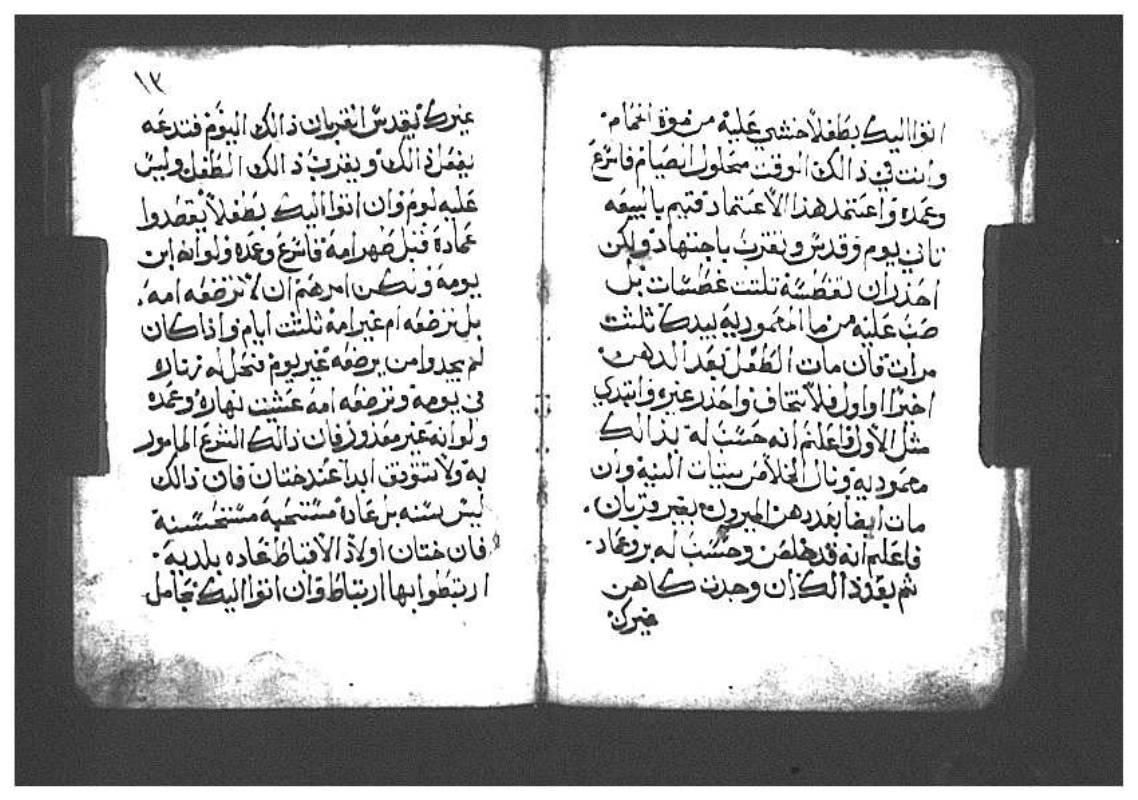 اتوا اليك بطفلا خشي عليه من فوة الحمام
وانت في ذالك الوقت محلول الصيام فاسرع
وعمده واعتمد هذا الاعتماد قتيم بالبيعه
تاني يوم وقدس وتقرب باجتهاد ولكن
احذر ان تغطسه تلتت غطسات بل
صب عليه من ما المعموديه بيدك ثلثت
مرات فان مات الطفل بعد الدهن
اخيرا اواول فلا تخاف واحدر غيره وابتدي
مثل الاول فاعلم انه حسبت له بذالك
معموديه ونال الخلاص بتبات النيه وان
مات ايضا بعد دهن الميرون بغير قربان
فاعلم انه قد خلص وحسب له بر وعماد
ثم بعد ذالك ان وجدت كاهن
غيرك
١٣
غيرك ليقدس القربان ذالك اليوم فتدعه
يفعل ذالك ويقرب ذالك الطفل وليس
عليه لوم وان اتوا اليك بطفلا يقصدوا
عماده قبل طهر امه فاسرع وعمده ولو انه ابن
يومه ولكن امرهم ان لا ترضعه امه
بل ترضعه ام غير امه ثلثت ايام واذا كان
لم يجدوا من يرضعه غير يوم فتحل له زناره
في يومه وترضعه امه عشيت نهاره وعمده
ولو انه غير معذور فان ذالك الشرع المامور
به ولا تتوقق ابدا عند ختان فان ذالك
ليس بسنه بل عادة مستحبه مستحسنه
فان ختان اولاد الاقباط عاده بلديه
ارتبطوا بها ارتباط وان اتوا اليك بحامل